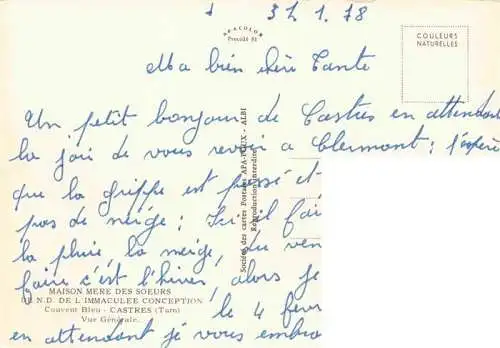 31.1.78
APACOLOR
Procédé 92
COULEURS
NATURELLES
Ma bien chère Tante
Un petit bonjour de Castres en attendant
la joie de vous revoir a Clermont : j'espère
que la grippe est passé et
pas de neige : Ici il fai
la pluie, la neige, du ven
faire c'est l'hiver, alors je
le 4 févr
en attendant je vous embra
MAISON MERE DES SOEURS
DE N.D. DE L'IMMACULEE CONCEPTION
Couvent Bleu - CASTRES (Tarn)
Vue Générale.
Société des cartes Postales APA-POUX - ALBI
Reproduction interdite